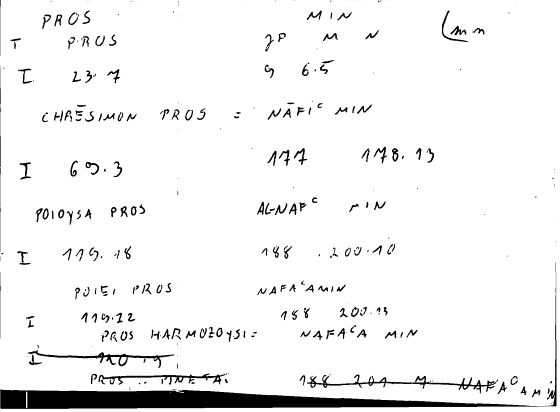 PROS MIN
I PROS M N (mn
I 23.7 9 6.5
CHRĒSIMON PROS = NĀFIᶜ MIN
I 69.3 177 178.13
POIOYSA PROS AL-NAFᶜ MIN
I 119.18 188 .200.10
POIEI PROS NAFAᶜAMIN
I 119.22 188 200.13
PROS HARMOZOYSI = NAFAᶜA MIN
I 120.9
PROS 188 201. 7 NAFAᶜAMIN